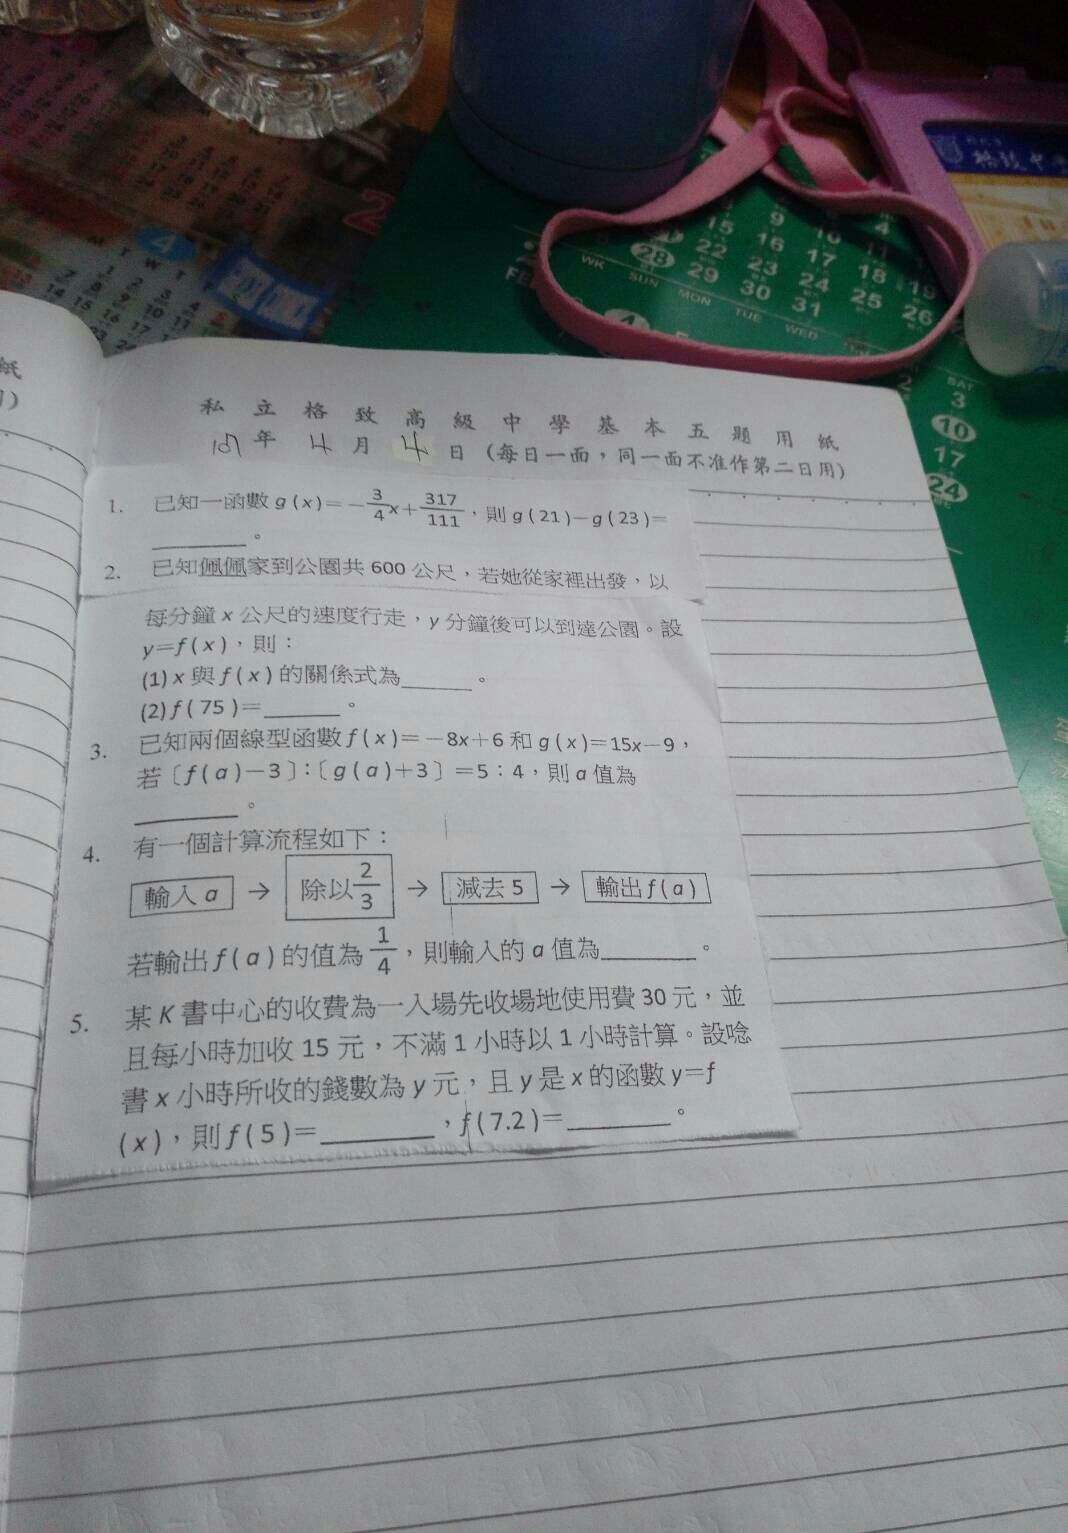 紙
私立格致高級中學基本五題用紙
107年4月4日(每日一面,同一面不准作第二日用)
1. 已知一函數 g(x)=-3/4x+317/111,則 g(21)-g(23)=
________。
2. 已知佩佩家到公園共 600 公尺,若她從家裡出發,以
每分鐘 x 公尺的速度行走,y 分鐘後可以到達公園。設
y=f(x),則:
(1) x 與 f(x) 的關係式為______。
(2) f(75)=______。
3. 已知兩個線型函數 f(x)=-8x+6 和 g(x)=15x-9,
若〔f(a)-3〕:〔g(a)+3〕=5:4,則 a 值為
________。
4. 有一個計算流程如下:
輸入 a → 除以 2/3 → 減去 5 → 輸出 f(a)
若輸出 f(a) 的值為 1/4,則輸入的 a 值為________。
5. 某 K 書中心的收費為一入場先收場地使用費 30 元,並
且每小時加收 15 元,不滿 1 小時以 1 小時計算。設唸
書 x 小時所收的錢數為 y 元,且 y 是 x 的函數 y=f
(x),則 f(5)=________,f(7.2)=________。
WK SUN MON TUE WED
SAT
15 16 17 18 19
28 22 23 24 25 26
29 30 31
3
10
17
24